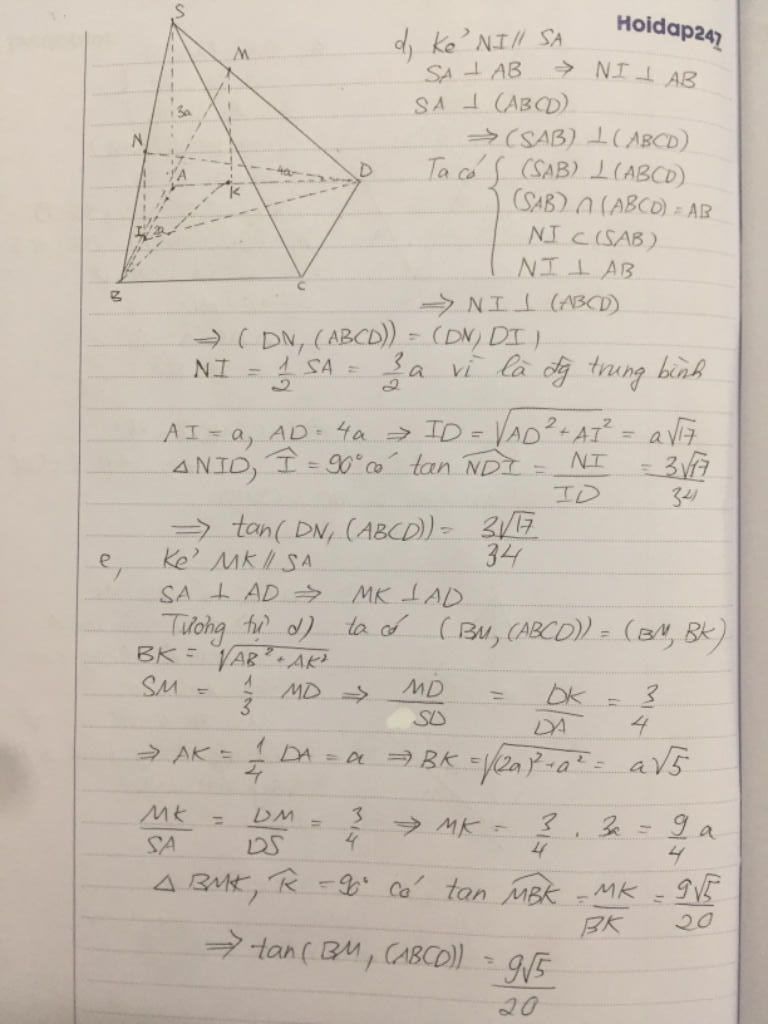 Hoidap247
S
M
3a
N
A
4a
D
K
I
B
C
d, Kẻ NI // SA
SA ⊥ AB ⇒ NI ⊥ AB
SA ⊥ (ABCD)
⇒ (SAB) ⊥ (ABCD)
Ta có { (SAB) ⊥ (ABCD)
(SAB) ∩ (ABCD) = AB
NI ⊂ (SAB)
NI ⊥ AB
⇒ NI ⊥ (ABCD)
⇒ ( DN, (ABCD)) = (DN, DI)
NI = 1/2 SA = 3/2 a vì là đg trung bình
AI = a, AD = 4a ⇒ ID = √(AD² + AI²) = a√17
△NID, Î = 90° có tan NDI = NI/ID = 3√17/34
⇒ tan( DN, (ABCD)) = 3√17/34
e, Kẻ MK // SA
SA ⊥ AD ⇒ MK ⊥ AD
Tương tự d) ta có (BM, (ABCD)) = (BM, BK)
BK = √(AB² + AK²)
SM = 1/3 MD ⇒ MD/SD = DK/DA = 3/4
⇒ AK = 1/4 DA = a ⇒ BK = √((2a)² + a²) = a√5
MK/SA = DM/DS = 3/4 ⇒ MK = 3/4 . 3a = 9/4 a
△ BMK, K̂ = 90° có tan MBK = MK/BK = 9√5/20
⇒ tan( BM, (ABCD)) = 9√5/20